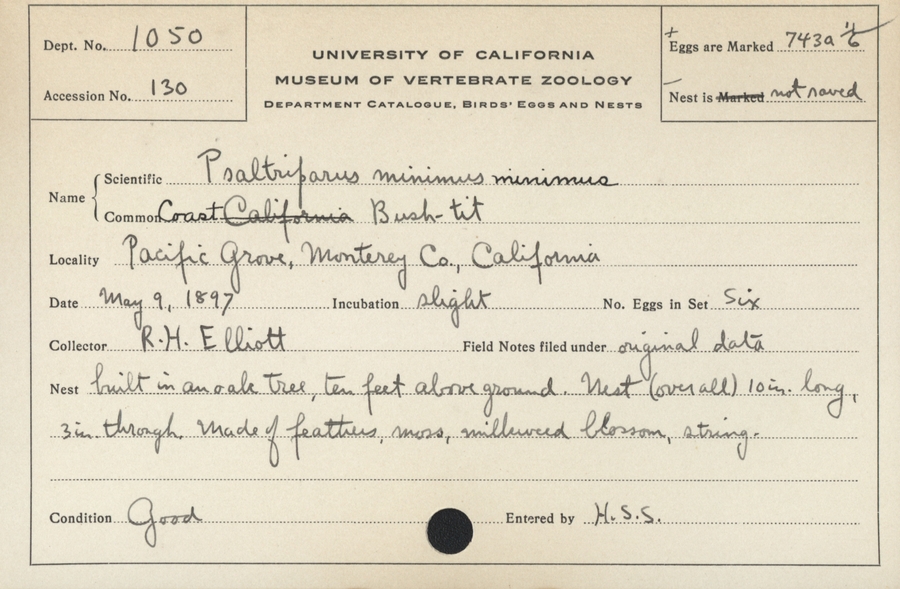 Dept. No. 1050
Accession No. 130
UNIVERSITY OF CALIFORNIA
MUSEUM OF VERTEBRATE ZOOLOGY
DEPARTMENT CATALOGUE, BIRDS' EGGS AND NESTS
+ Eggs are Marked 743a
– Nest is Marked not saved
Name
Scientific Psaltriparus minimus minimus
Common Coast California Bush-tit
Locality Pacific Grove, Monterey Co., California
Date May 9, 1897 Incubation slight No. Eggs in Set Six
Collector R.H. Elliott Field Notes filed under original data
Nest built in an oak tree, ten feet above ground. Nest (over all) 10 in. long,
3 in. through. Made of feathers, moss, milkweed blossom, string.
Condition Good Entered by H.S.S.